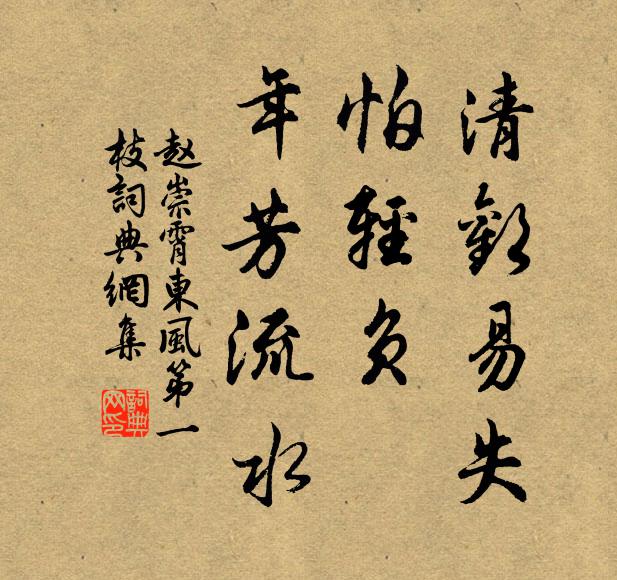 清歡易失
怕輕負
年芳流水
赵崇霄東風第一
枝詞典網集
詞典
网印